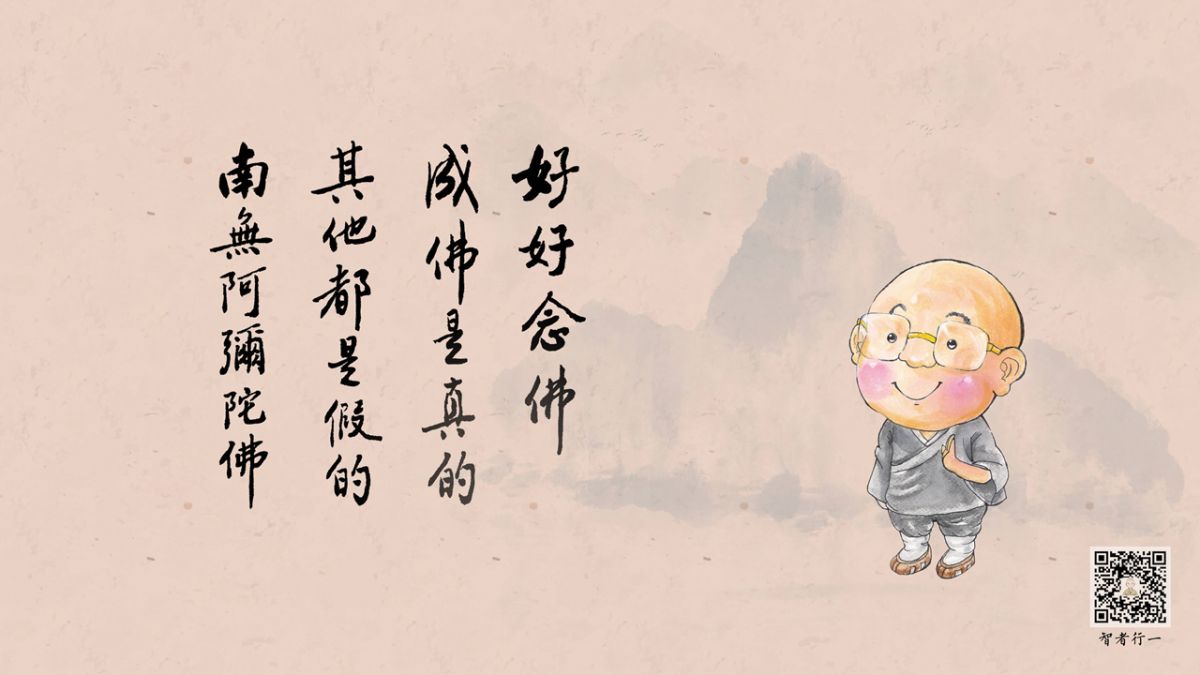 好好念佛
成佛是真的
其他都是假的
南無阿彌陀佛
智者行一